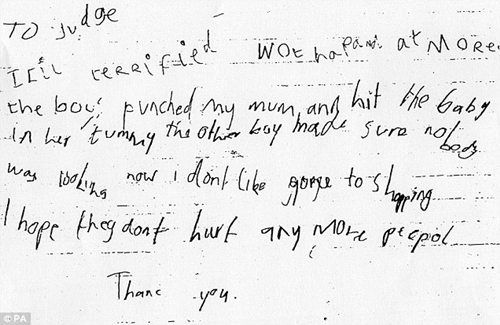 TO judge
terrified wot hapand at More
the boy punched my mum and hit the baby
in her tummy the other boy made sure not body
was looking now i dont like gorge to shopping
I hope they dont hurt any More peepol
Thanc you.
©PA